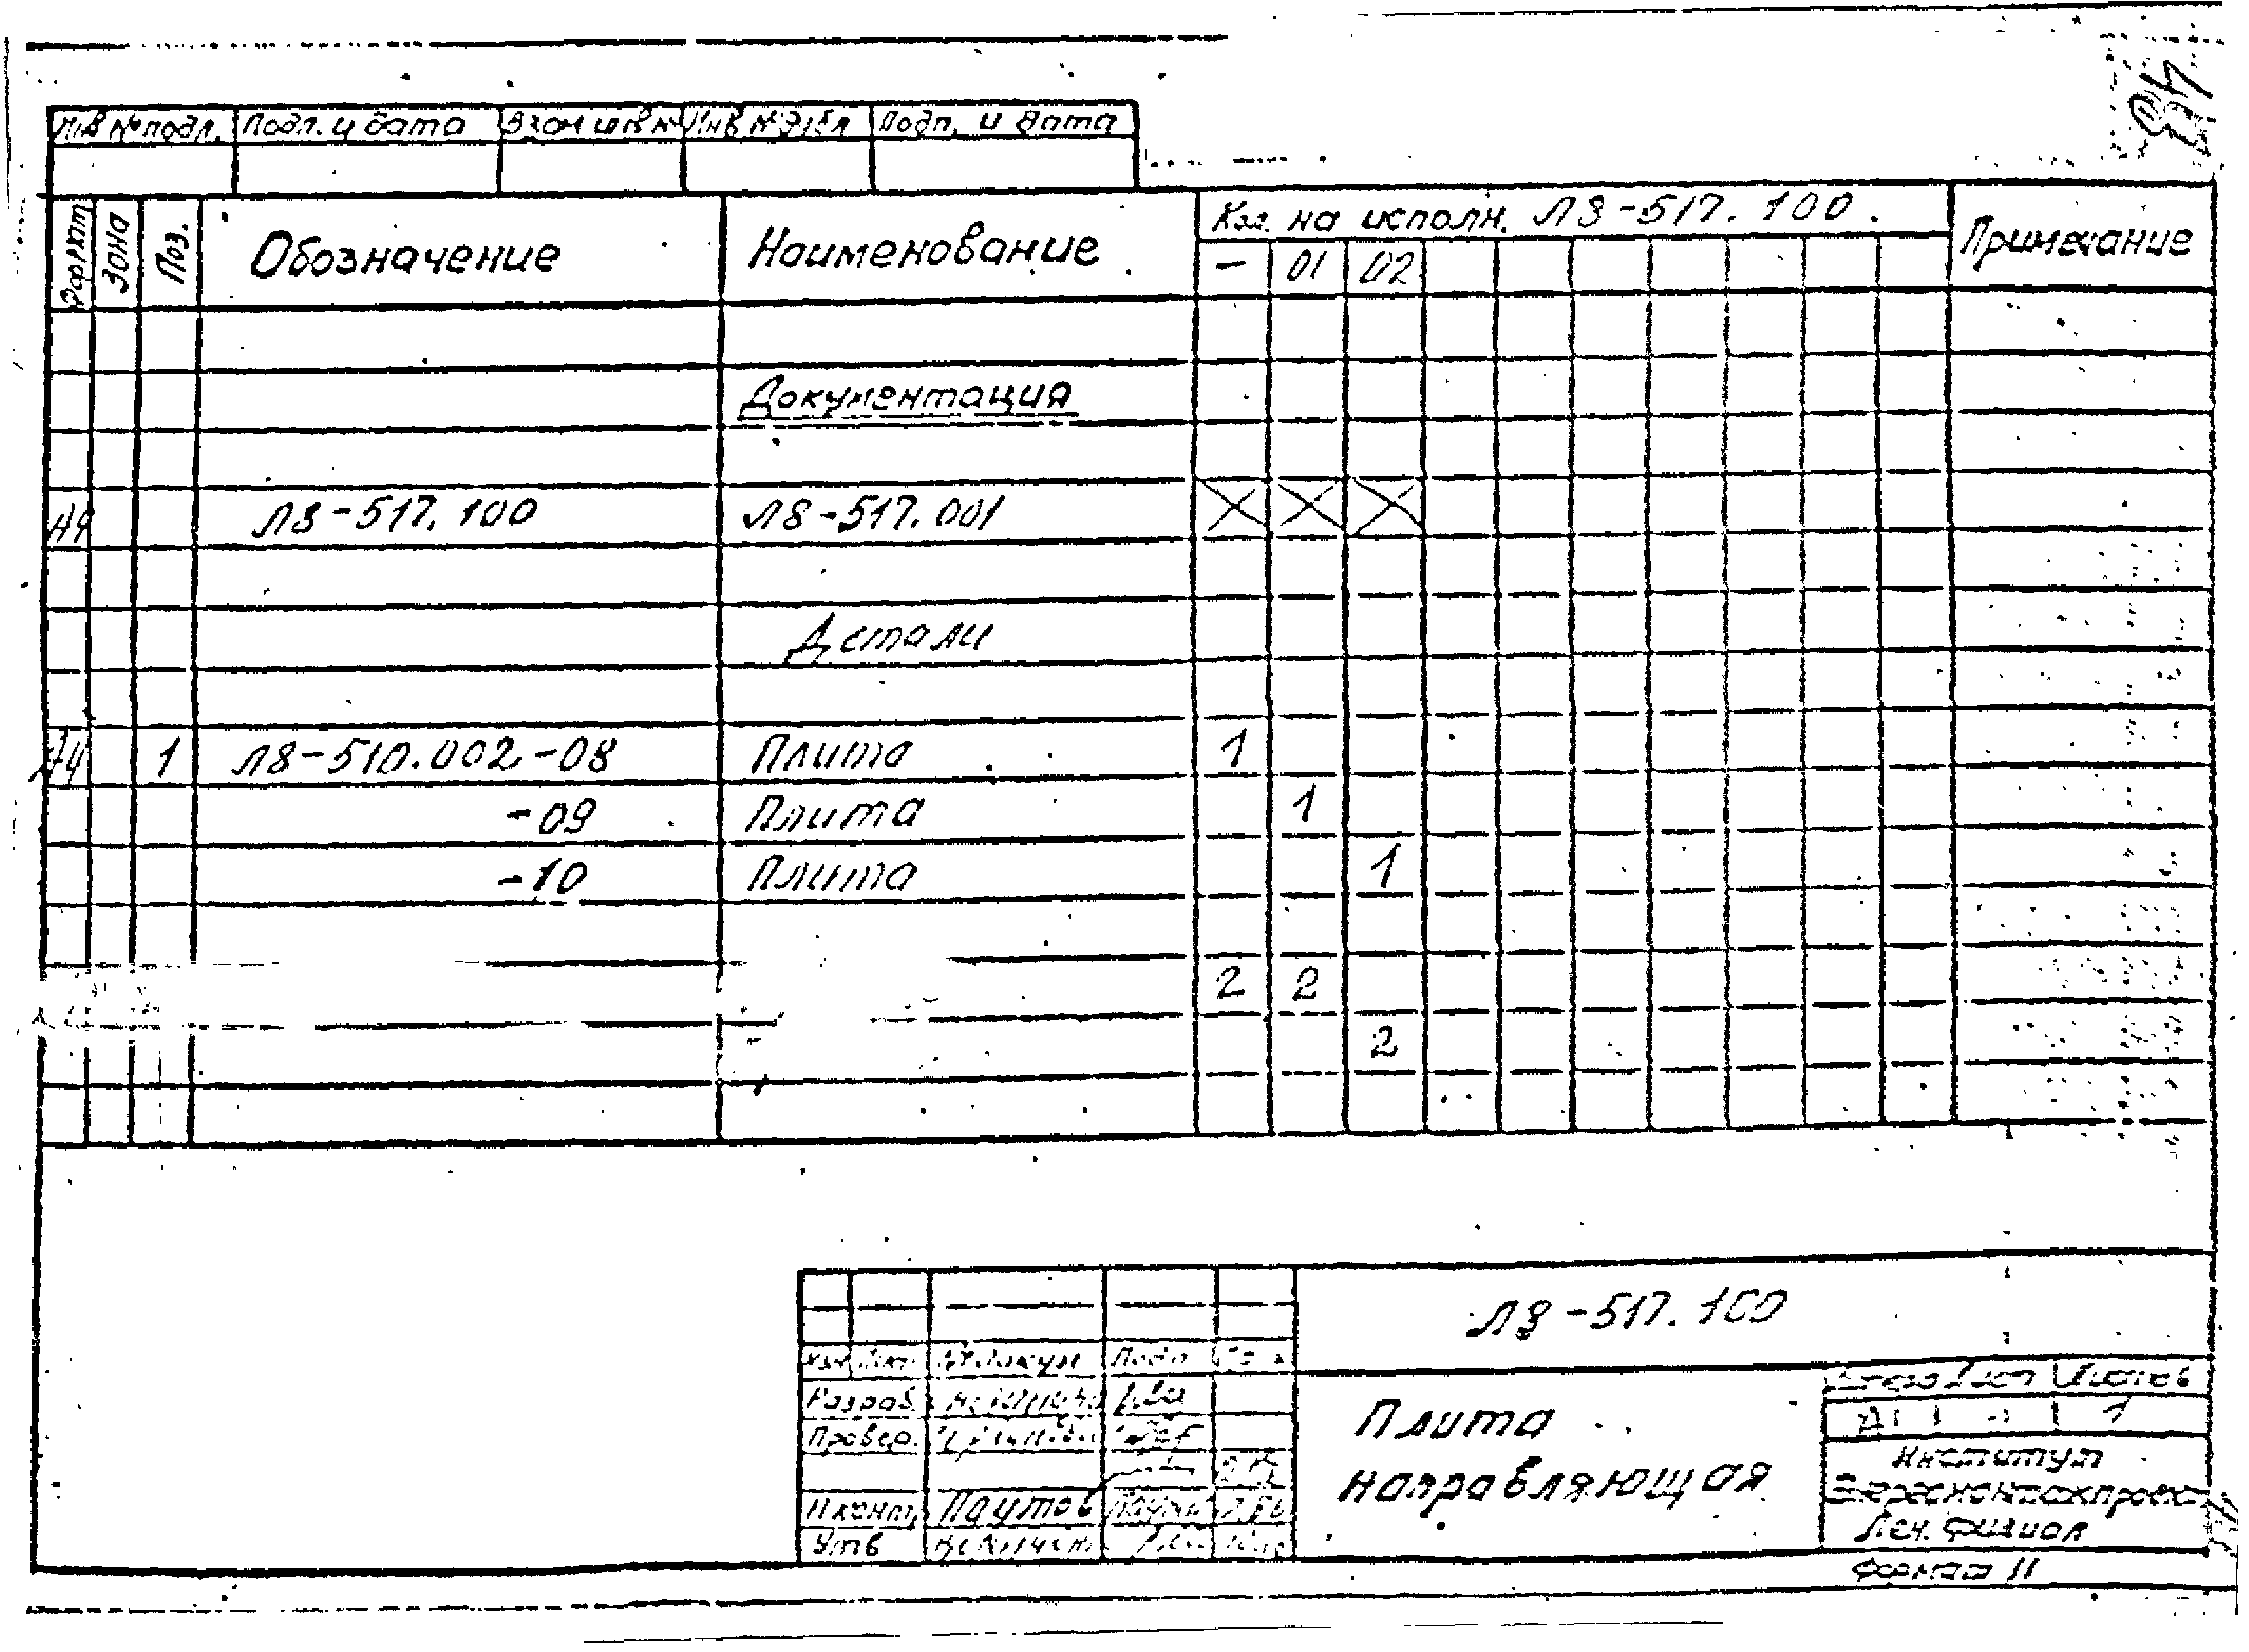 Инв № подл. Подп. и дата Взам инв № Инв № дубл Подп. и дата
Формат Зона Поз. Обозначение Наименование Кол. на исполн. Л8-517.100. Примечание
- 01 02
Документация
А4 Л8-517.100 Л8-517.001
Детали
А4 1 Л8-510.002-08 Плита 1
-09 Плита 1
-10 Плита 1
2 2
2
Л8-517.100
Изм Лист № докум Подп
Разраб.
Провер.
Н контр Паутов
Утв
Плита
направляющая
Лист Листов
1
Институт
Энергомонтажпроект
Лен. филиал
Формат 11